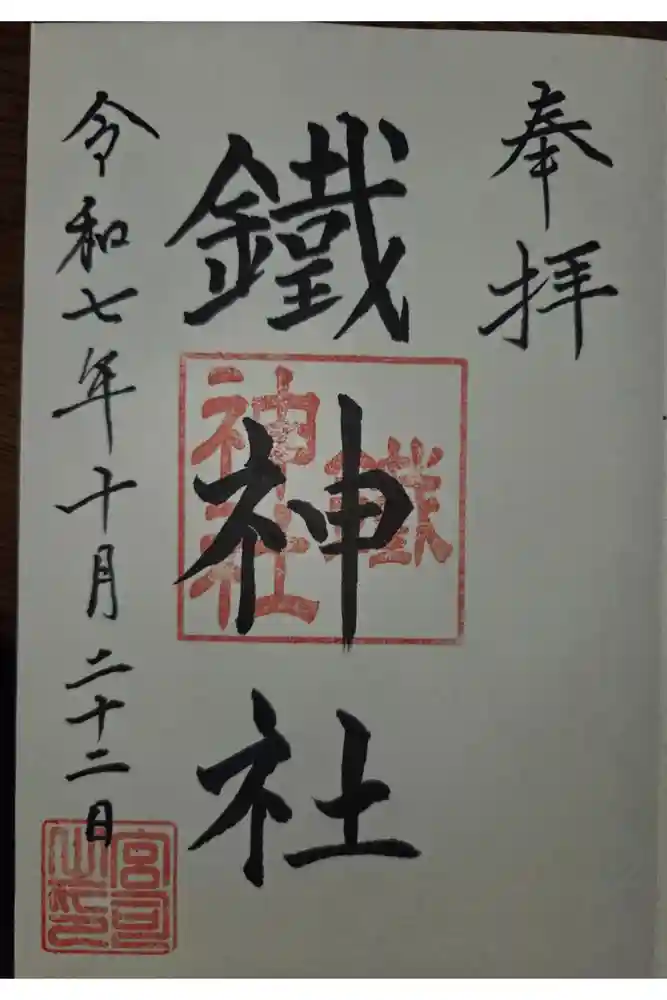 奉拝
鐵神社
鐵神社
令和七年十月二十二日
宮司之印